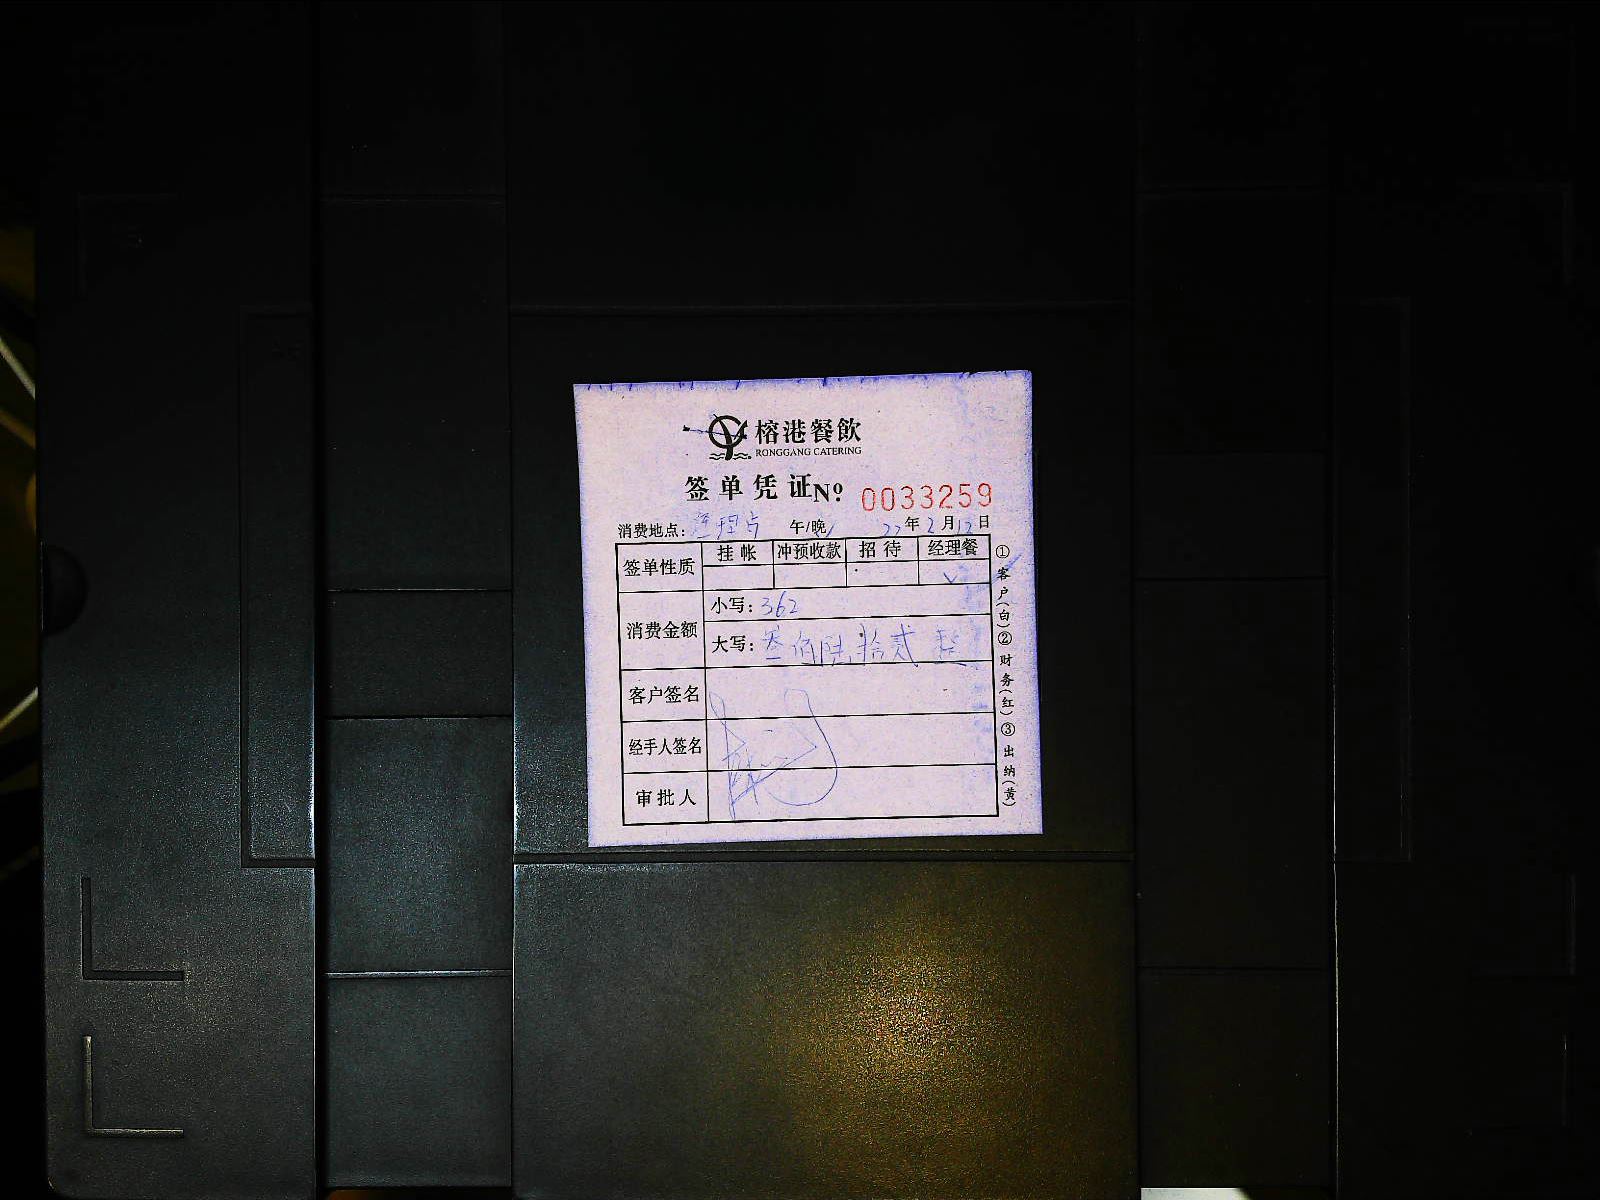 榕港餐飲
RONGGANG CATERING
签单凭证 № 0033259
消费地点: 午/晚 22年2月12日
签单性质 挂帐 冲预收款 招待 经理餐
✓
消费金额 小写: 362
大写: 叁佰陆拾贰 整
客户签名
经手人签名
审批人
①客户(白)②财务(红)③出纳(黄)